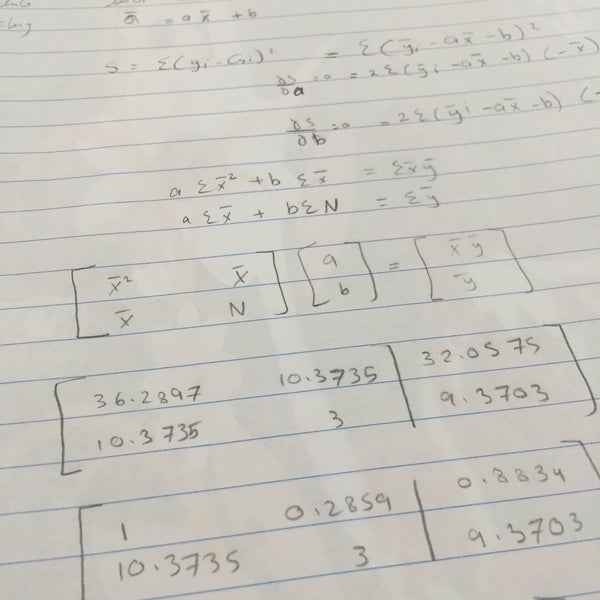 = a x̄ + b
S = Σ(yi - Gi)² = Σ(ȳi - ax̄ - b)²
∂S/∂a = 0 = 2Σ(ȳi - ax̄ - b) (-x̄)
∂S/∂b = 0 = 2Σ(ȳi - ax̄ - b) (-
a Σx̄² + b Σx̄ = Σx̄ȳ
a Σx̄ + bΣN = Σȳ
[x̄² x̄] [a] = [x̄ ȳ]
[x̄ N] [b] [ȳ]
36.2897 10.3735 | 32.0575
10.3735 3 | 9.3703
1 0.2859 | 0.8834
10.3735 3 | 9.3703